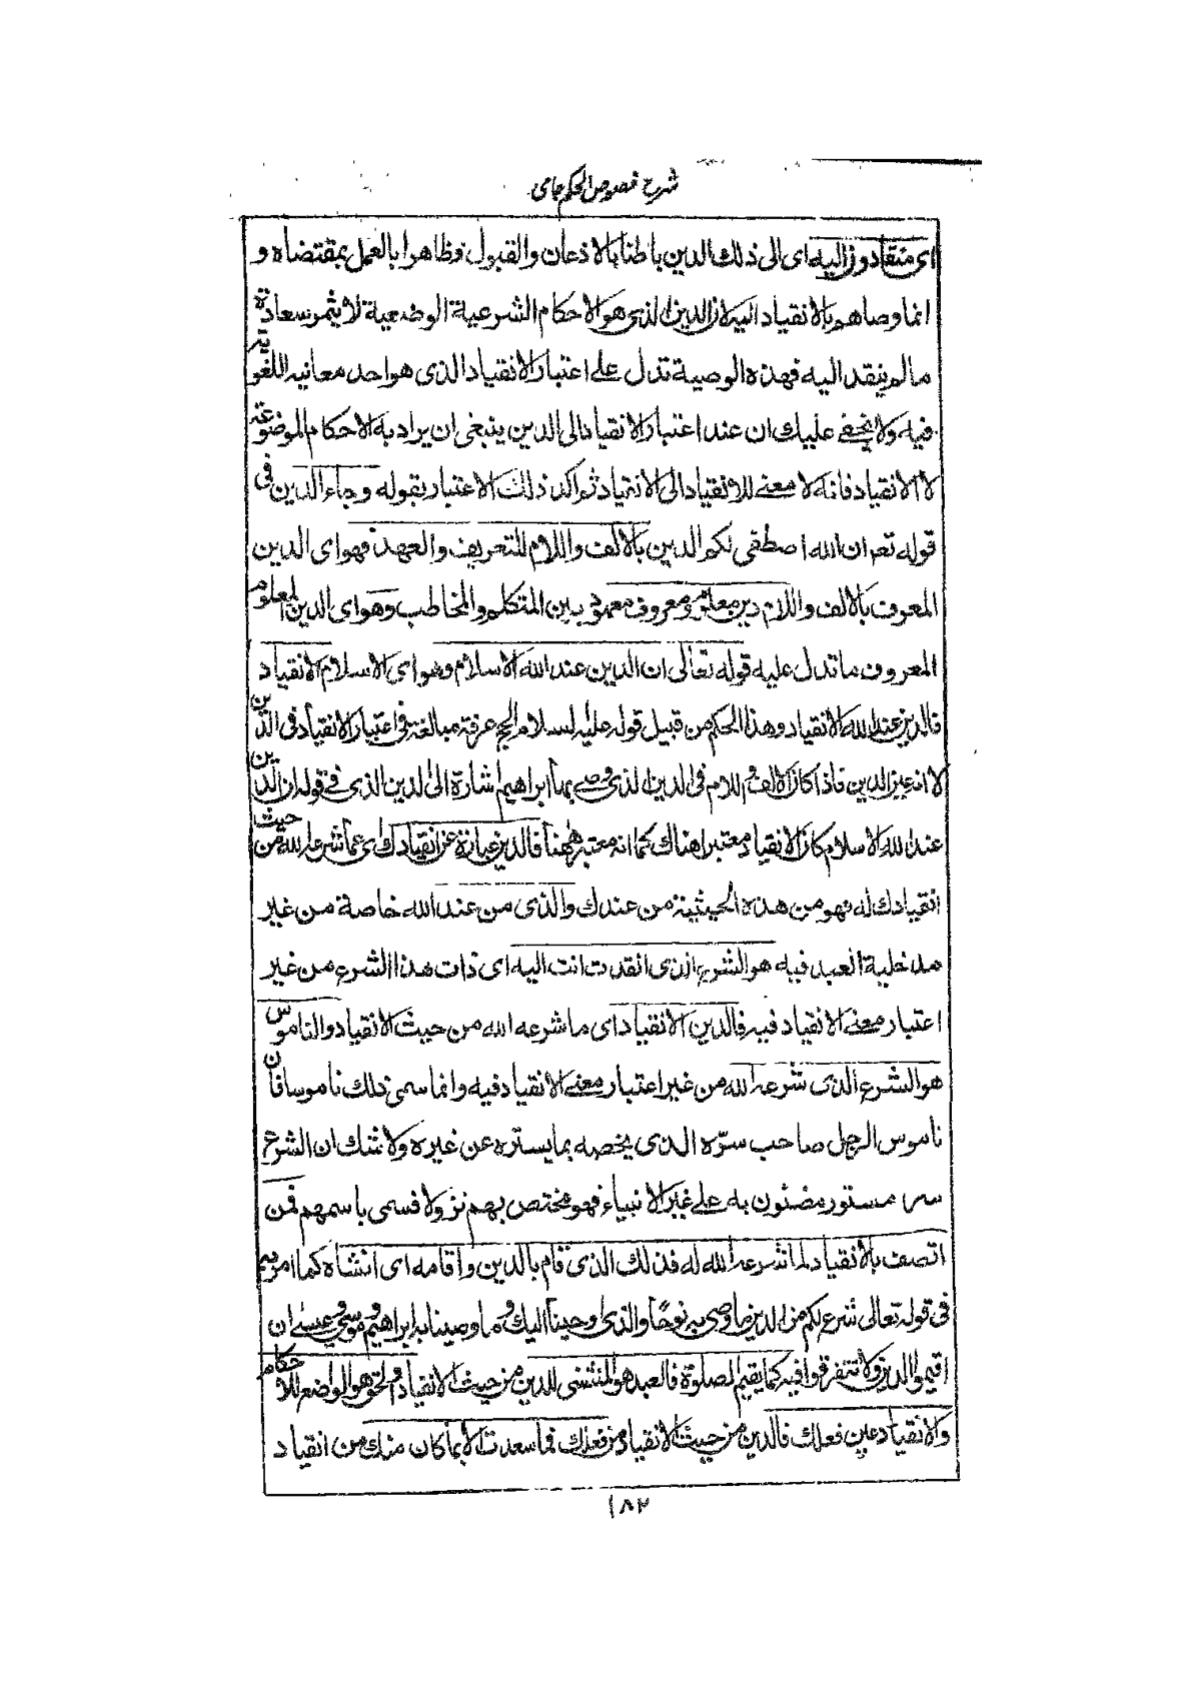 شرح فصوص الحكم جامی
ای منقادون اليه ای الى ذلك الدين باطنا بالاذعان والقبول وظاهرا بالعمل بمقتضاه و
انما وصاهم بالانقياد اليه لان الدين الذی هو الاحكام الشرعية الوضعية لا يثمر سعادة
مالم ينقد اليه فهذه الوصية تدل على اعتبار الانقياد الذی هو احد معانيه اللغوية
فيه ولا يخفى عليك ان عند اعتبار الانقياد الى الدين ينبغی ان يراد به الاحكام الموضوعة
لا الانقياد فانه لا معنى للانقياد الى الانقياد ثم اكد ذلك الاعتبار بقوله وجاء الدين فی
قوله تعران الله اصطفى لكم الدين بالالف واللام للتعريف والعهد فهو ای الدين
المعرف بالالف واللام دين معلوم ومعروف معهود بين المتكلم والمخاطب وهو ای الدين المعلوم
المعروف ما تدل عليه قوله تعالى ان الدين عند الله الاسلام وهو ای الاسلام الانقياد
فالدين عند الله الانقياد وهذا الحكم من قبيل قوله عليه لسلام الحج عرفة مبالغة فی اعتبار الانقياد فی الدين
لا انه عين الدين فاذا كان الالف واللام فی الدين الذی وصى بها ابراهيم اشارة الى الدين الذی فی قوله ان الدين
عند الله الاسلام كان الانقياد معتبرا هناك كما انه معتبر ههنا فالدين عبارة عن انقيادك ای عما شرعه الله من حيث
انقيادك له فهو من هذه الحيثية من عندك والذی من عند الله خاصة من غير
مدخلية العبد فيه هو الشرع الذی انقدت انت اليه ای ذات هذا الشرع من غير
اعتبار معنى الانقياد فيه فالدين الانقياد ای ما شرعه الله من حيث الانقياد والناموس
هو الشرع الذی شرعه الله من غير اعتبار معنى الانقياد فيه وانما سمی ذلك ناموسا فان
ناموس الرجل صاحب سرّه الذی يخصه بما يستره عن غيره ولا شك ان الشرع
سر مستور مضنون به على غير الانبياء فهو مختص بهم نزولا فسمی باسمهم فمن
اتصف بالانقياد لما شرعه الله له فذلك الذی قام بالدين واقامه ای انشاه كما امر به
فی قوله تعالى شرع لكم من الدين ما وصى به نوحًا والذی اوحينا اليك وما وصينا به ابراهيم وموسى وعيسى ان
اقيموا الدين ولا تتفرقوا فيه كما يقيم الصلوة فالعبد هو المنشئ للدين من حيث الانقياد والحق هو الواضع للاحكام
والانقياد عين فعلك فالدين من حيث الانقياد من فعلك فما سعدت الا بما كان منك من انقياد
١٨٢